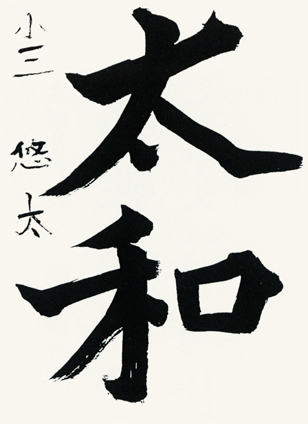 太和
小三 悠太